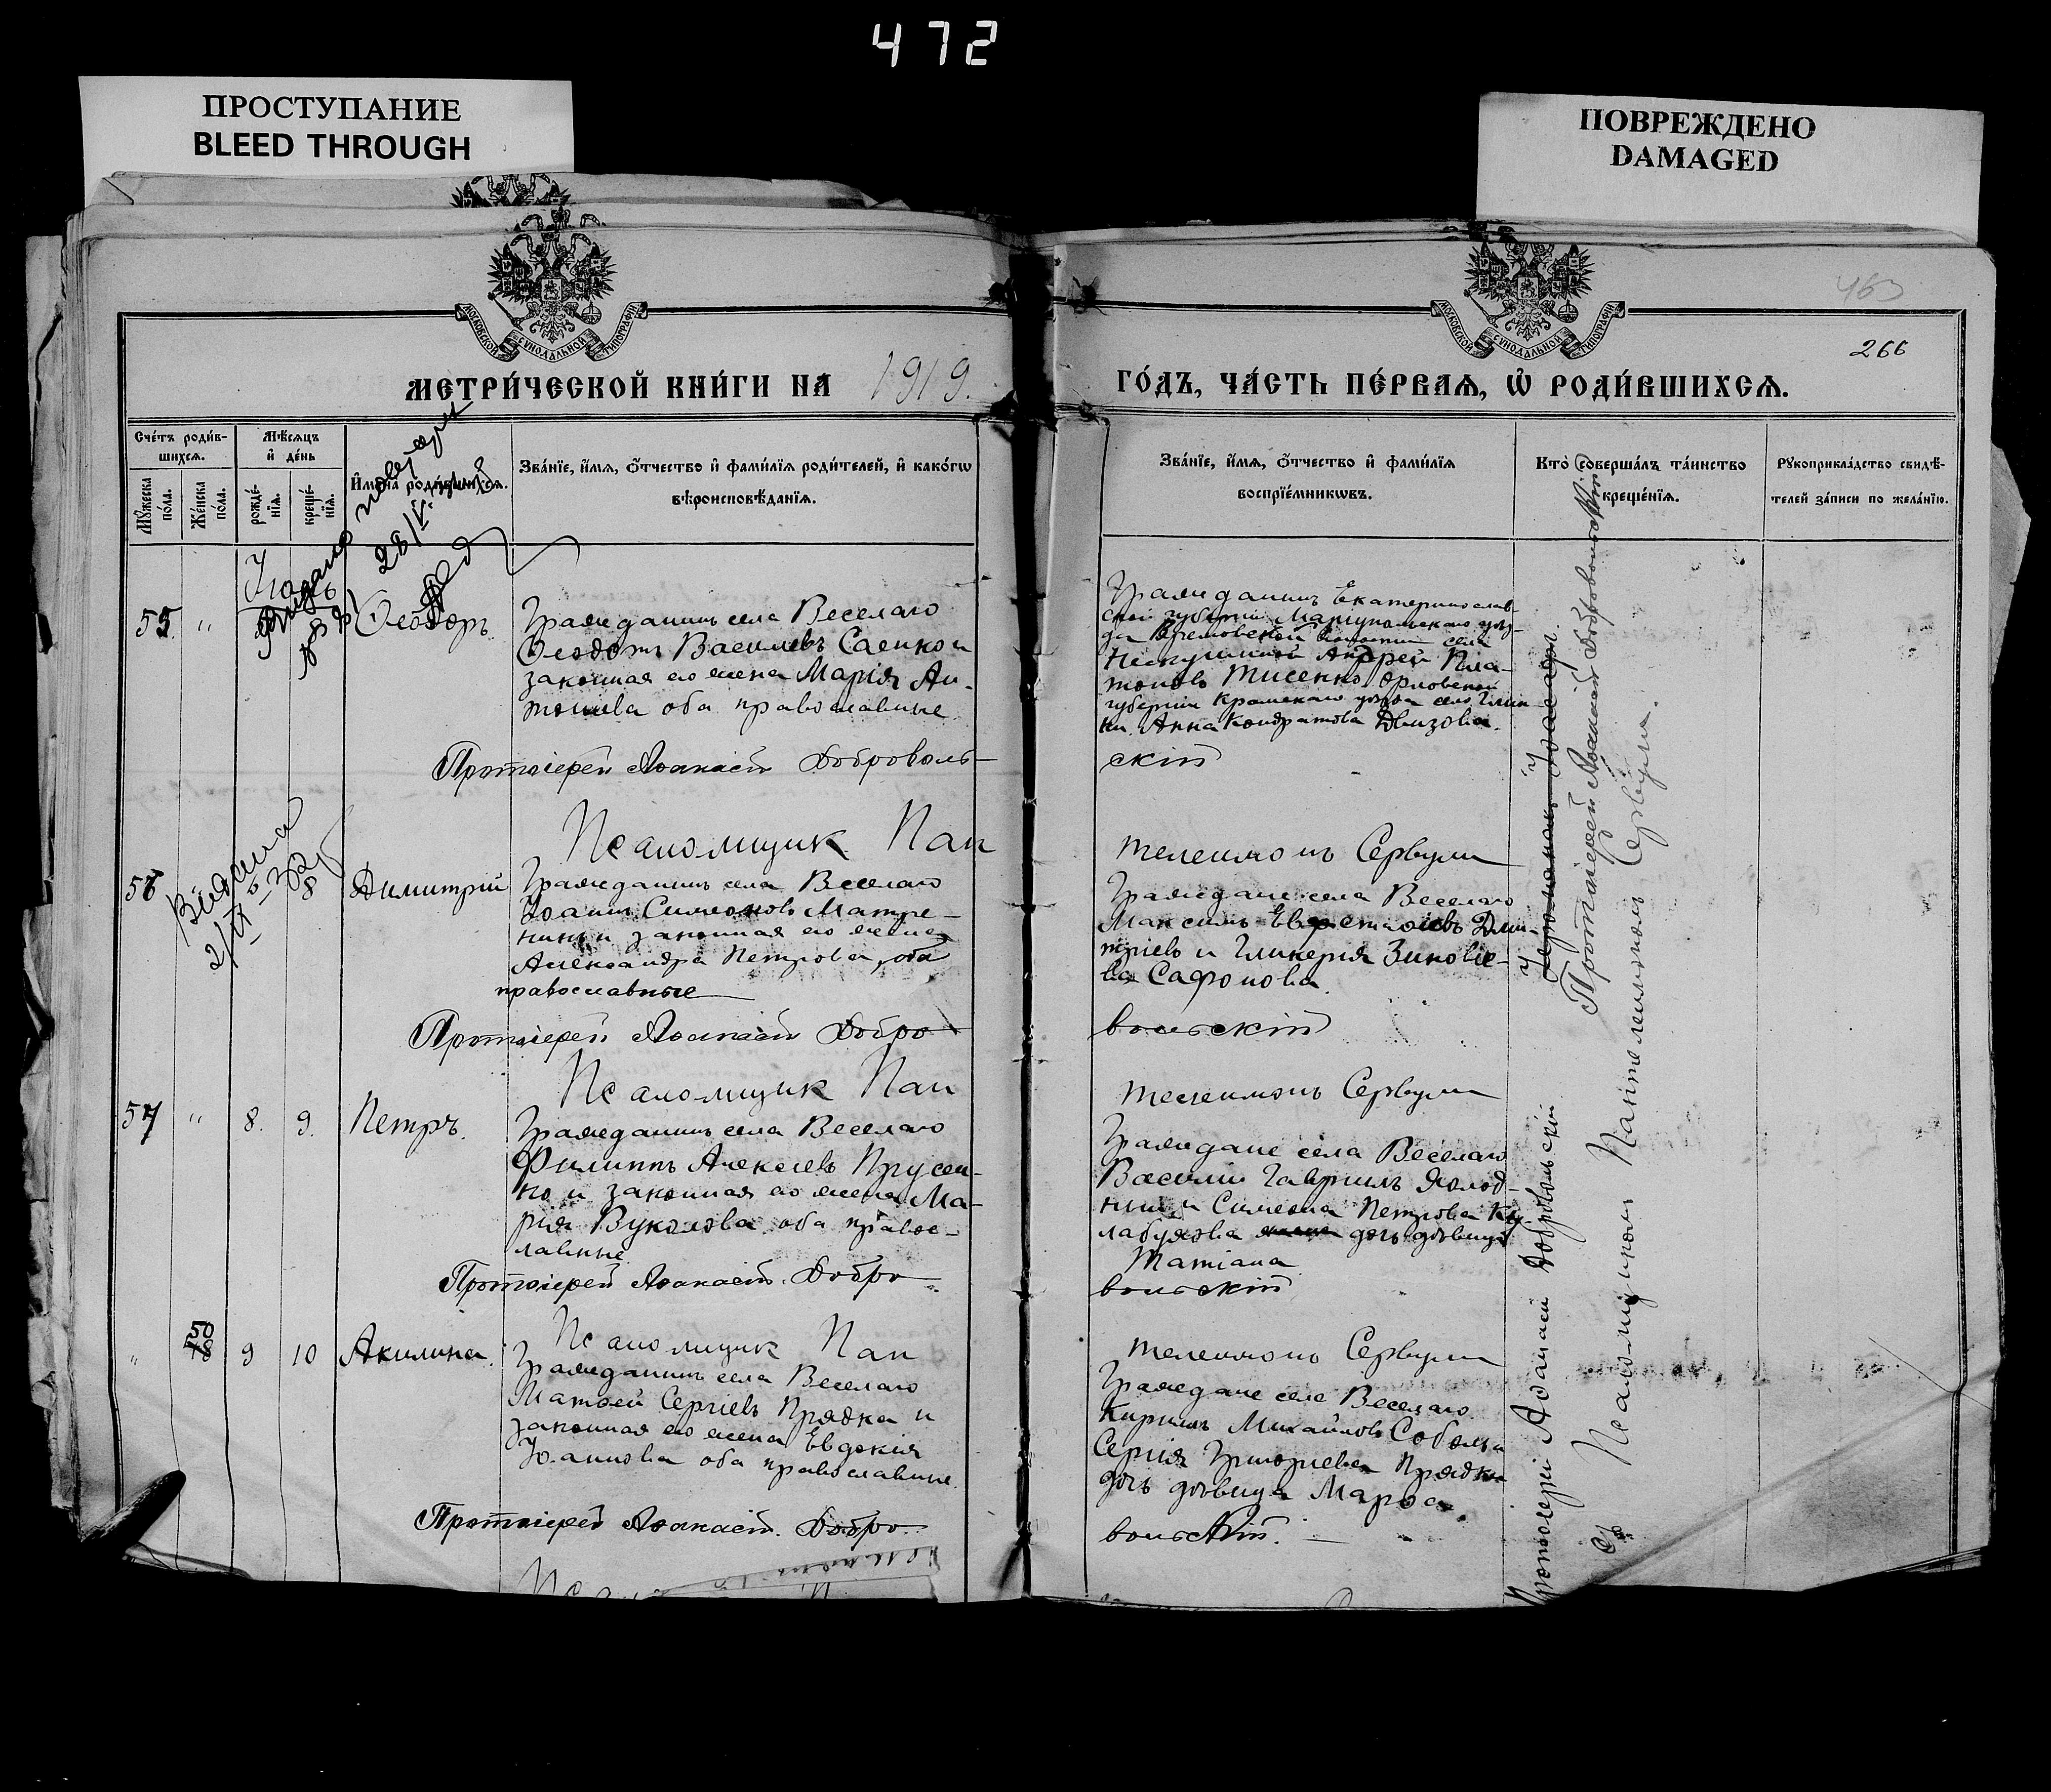 472
ПРОСТУПАНИЕ
BLEED THROUGH
ПОВРЕЖДЕНО
DAMAGED
МОСКОВСКОЙ СѴНОДАЛЬНОЙ ТИПОГРАФІИ
МОСКОВСКОЙ СѴНОДАЛЬНОЙ ТИПОГРАФІИ
463
266
МЕТРИ́ЧЕСКОЙ КНИ́ГИ НА 1919.
ГО́ДЪ, ЧА́СТЬ ПЕ́РВАЯ, Ѡ҆ РОДИ́ВШИХСЯ.
Сче́тъ роди́в-
шихся.
Мѣ́сяцъ
и҆ де́нь
Мꙋ́жеска
пола.
Же́нска
по́ла.
рожде́-
нїя.
креще́-
нїя.
И҆мена̀ роди́вшихся.
Зва́нїе, и҆́мя, ѻ҆́тчество и҆ фами́лїя роди́телей, и҆ како́гѡ
вѣроисповѣ́данїя.
Зва́нїе, и҆́мя, ѻ҆́тчество и҆ фами́лїя
воспрїе́мникѡвъ.
Кто̀ соверша́лъ та́инство
креще́нїя.
Рꙋкоприкла́дство свидѣ́-
телей за́писи по жела́нїю.
28/V
55. "
Ѳеодоръ
Гражданинъ села Веселаго
Ѳеодотъ Василіевъ Саенко и
законная его жена Марія Ан-
тонова оба православные
Гражданинъ Екатеринослав-
ской губерніи Маріупольскаго уѣз-
да
Андрей Пла-
тоновъ Тисенко Орловской
губерніи Кромскаго уѣзда село
Анна Кондратова
Протоіерей Аѳанасій Доброволь-
скій
Псаломщик Пан
телеимонъ Сервули
Выдана
2/IX
56 8 Димитрій
Гражданинъ села Веселаго
Іоаннъ Симеоновъ Матре-
нинъ и законная его жена
Александра Петрова, оба
православные
Граждане села Веселаго
Максимъ Дми-
тріевъ и Гликерія Зиновіе-
ва Сафонова.
Протоіерей Аѳанасій Добро
вольскій
Псаломщик Пан
телеимонъ Сервули
57 " 8. 9. Петръ.
Гражданинъ села Веселаго
Филиппъ Алексѣевъ Прусен-
ко и законная его жена Ма-
рія Вуколова оба правос-
лавные
Граждане села Веселаго
Василій Гавріилъ Холод-
ный и Симеона Петрова Ку-
лабухова дочь дѣвица
Татіана
Протоіерей Аѳанасій Добро
вольскій
Псаломщик Пан
телеимонъ Сервули
" 50 9 10 Акилина.
Гражданинъ села Веселаго
Матѳей Сергіевъ Прядка и
законная его жена Евдокія
Іоаннова оба православные.
Граждане села Веселаго
Кириллъ Михайловъ Соболь и
Сергія Григоріева Прядка
дочь дѣвица Марѳа.
Протоіерей Аѳанасій. Добро
вольскій.
Протоіерей Аѳанасій Добровольскій
Протоіерей Аѳанасій Добровольскій
Съ Псаломщикомъ Пантелеимономъ Сервули.